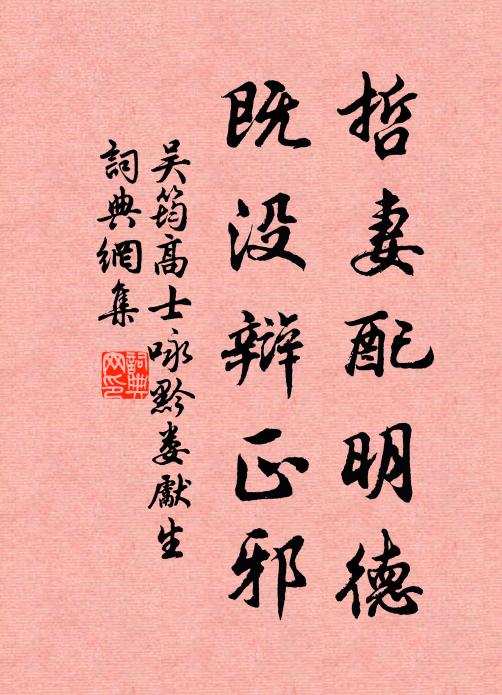 哲妻配明德
既没辩正邪
吴筠高士咏黔娄獻生
詞典網集
詞典
网印